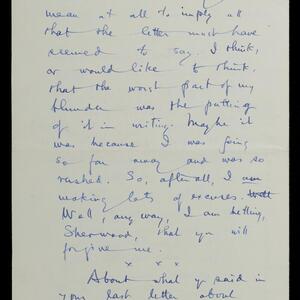 mean at all to imply all
that the letter must have
seemed to say. I think,
or would like to think,
that the worst part of my
blunder was the putting
of it in writing. Maybe it
was because I was going
so far away and was so
rushed. So, after all, I am
making lots of excuses. Well
Well, any way, I am betting,
Sherwood, that you will
forgive me.
x x x
About what yo said in
your last letter about